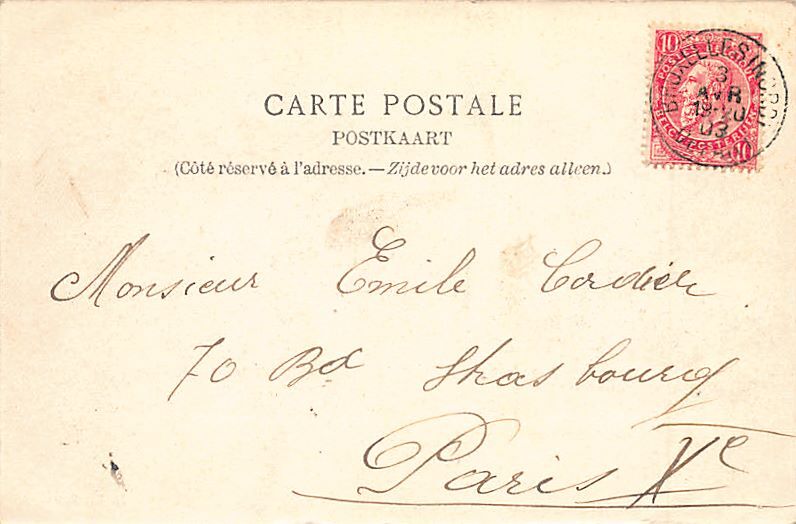 CARTE POSTALE
POSTKAART
(Côté réservé à l'adresse.—Zijde voor het adres alleen.)
10
BRUXELLES (NORD)
3
AVR
19-20
03
DÉPART
10
Monsieur Emile Cordier
70 Bd Strasbourg
Paris Xe